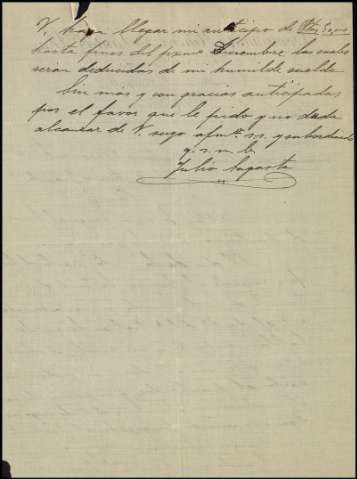 V. haga llegar mi anticipo de Ptas
hasta fines del proximo Diciembre las cuales
seran deducidas de mi humilde sueldo
Sin mas y con gracias anticipadas
por el favor que le pido y no duda
alcanzar de V. suyo afmo. s.s. y subordinado
q. s. m. b.
Julio Lagasta